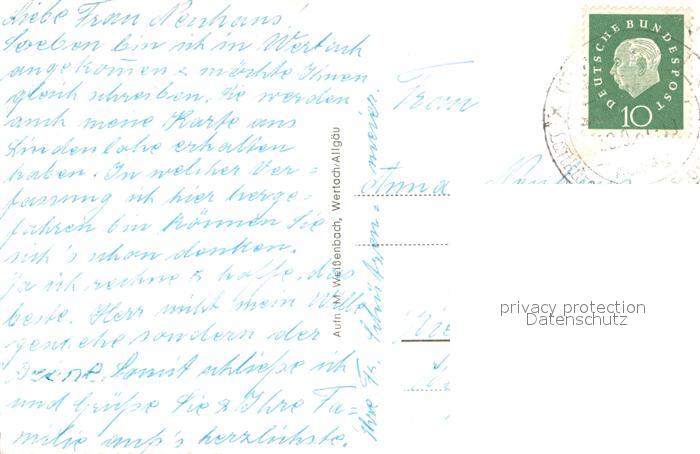 Liebe Frau Neuhaus!
Soeben bin ich in Wertach
angekommen & möchte Ihnen
gleich schreiben. Sie werden
auch meine Karte aus
Lindenlohe erhalten
haben. In welcher Ver=
fassung ich hier herge=
fahren bin können Sie
sich's schon denken.
Ja ich rechne & hoffe, das
beste. Herr nicht mein Wille
geschehe sondern der
Deine. Somit schließe ich
und Grüße Sie & Ihre Fa=
milie auf's herzlichste.
Ihre Fr. Schützen=
meier.
Aufn.: M. Weißenbach, Wertach/Allgäu
Frau
Anna
DEUTSCHE BUNDESPOST
10
privacy protection
Datenschutz